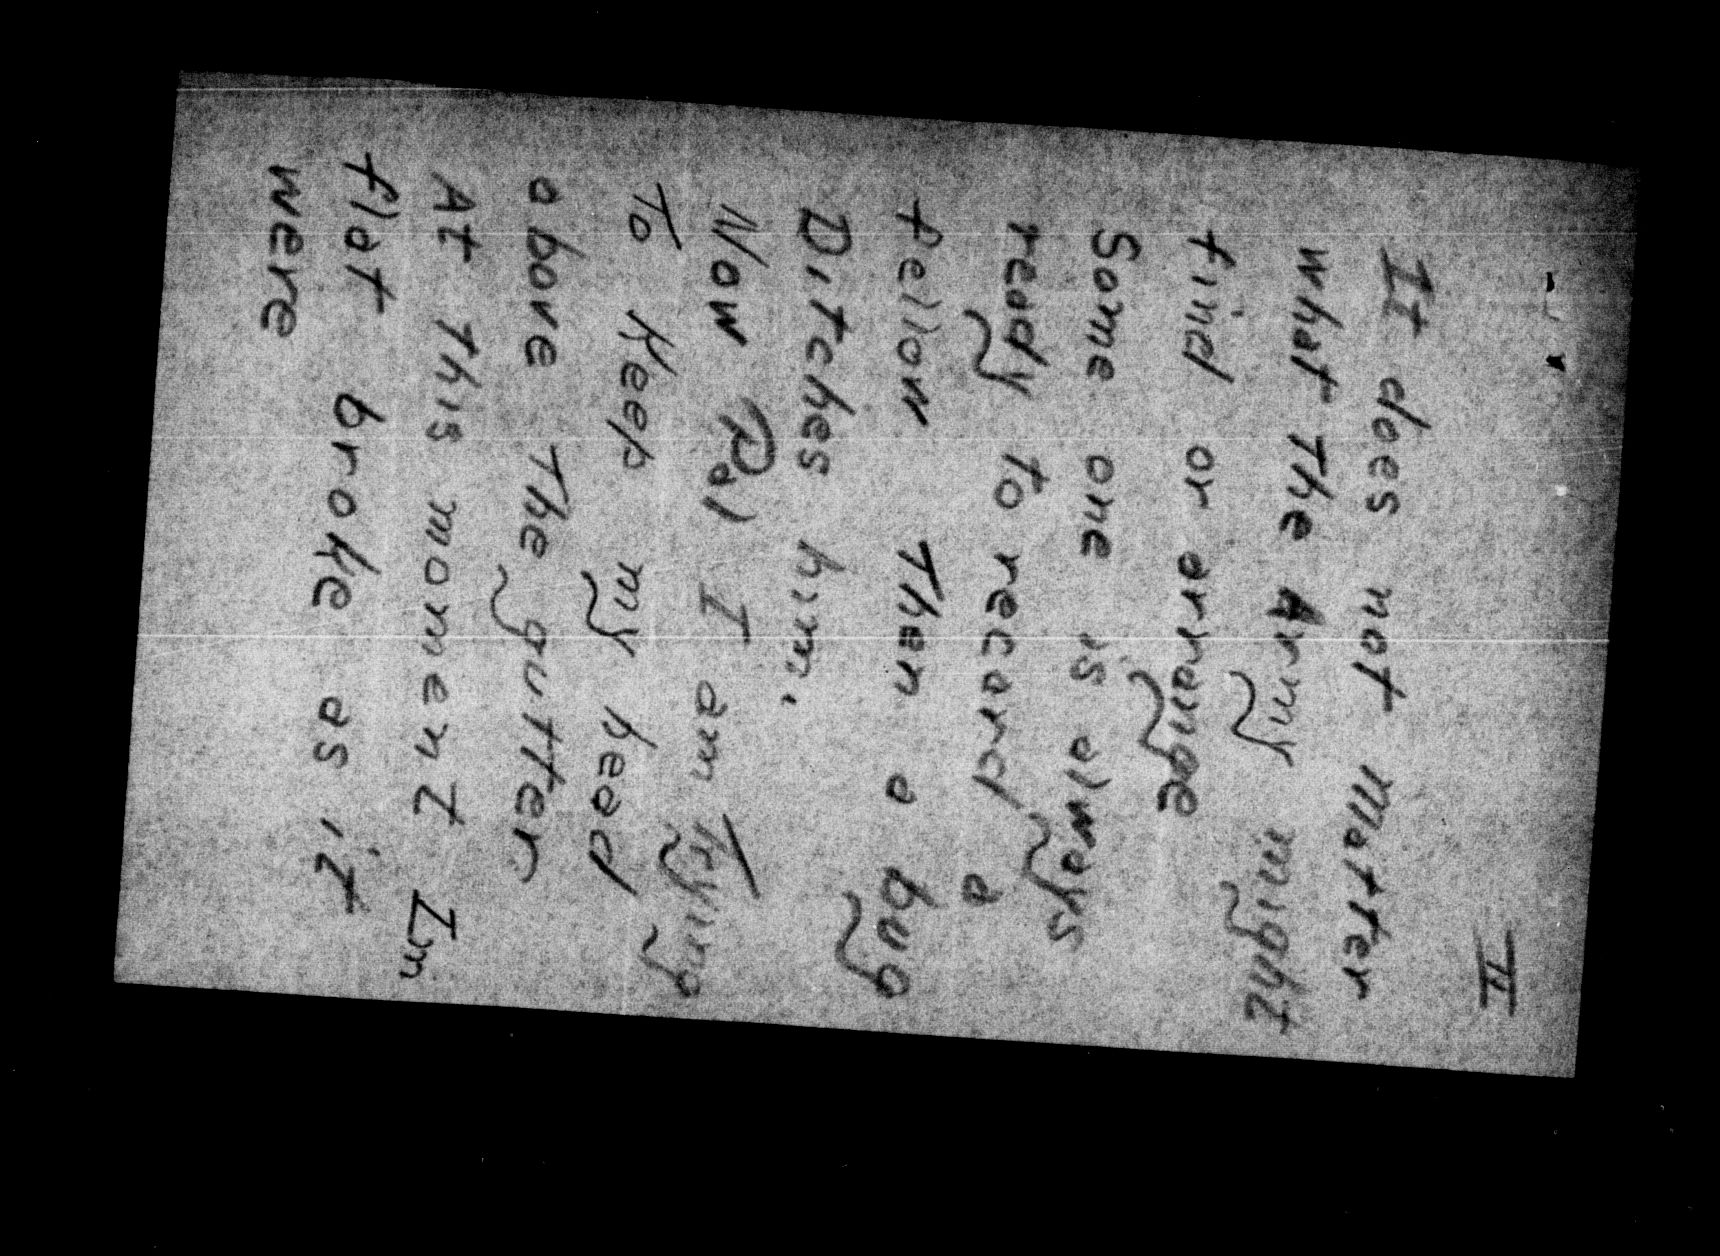 II
It does not Matter
what The Army might
find or arrange
Some one is always
ready to record a
fellow Then a bug
Ditches him.
Now Pal I am Trying
To Keep my head
above The gutter
At This moment Im
flat broke as it
were